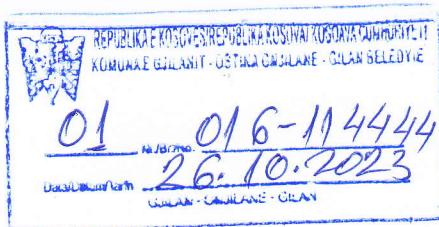 REPUBLIKA E KOSOVËS/REPUBLIKA KOSOVA/KOSOVA CUMHURIYETI
KOMUNA E GJILANIT - OPŠTINA GNJILANE - GILAN BELEDYIE
01 Nr/Br/No. 016-114444
Data/Datum/Tarih 26.10.2023
GJILAN - GNJILANE - GILAN